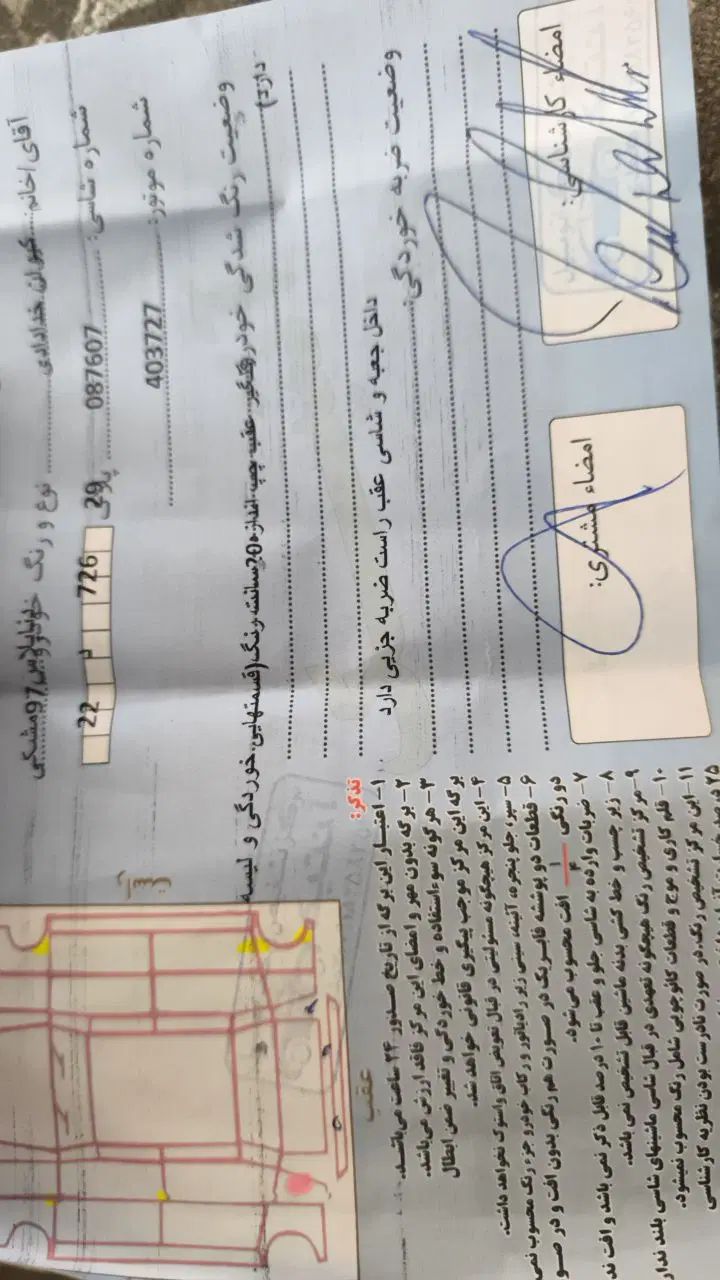 آقای/خانم: کیوان خدادادی نوع و رنگ خودرو: دنا پلاس 97 مشکی
شماره شاسی: 087607 پلاک 29 726 د 22
شماره موتور: 403727
وضعیت رنگ شدگی خودرو: گلگیر عقب چپ اندازه 20 سانت رنگ (قسمتهایی خوردگی و لیسه
دارد)
داخل جعبه و شاسی عقب راست ضربه جزیی دارد
وضعیت ضربه خوردگی:
امضاء کارشناس:
امضاء مشتری:
عقب
تذکر:
۱- اعتبار این برگه از تاریخ صدور ۲۴ ساعت می‌باشد.
۲- برگه بدون مهر و امضای این مرکز فاقد ارزش می‌باشد.
۳- هرگونه سوءاستفاده و خط خوردگی و تغییر ضمن ابطال
برگه این مرکز موجب پیگیری قانونی خواهد شد.
۴- این مرکز هیچگونه مسئولیتی در قبال تعویض اتاق و استوک نخواهد داشت.
۵- سپر، جلو پنجره، آئینه، سینی زیر رادیاتور و رکاب خودرو جزء رنگ محسوب نمی
۶- قطعات دو پوششه فابریک در صورت هم رنگی بدون افت و در صو
دو رنگی ۱/۴ افت محسوب می‌شود.
۷- ضربات وارده به شاسی جلو و عقب تا ۱۰ درصد قابل ذکر نمی باشد و افت ند
۸- زیر چسب و خط کشی بدنه ماشین قابل تشخیص نمی باشد.
۹- مرکز تشخیص رنگ هیچگونه تعهدی در قبال شاسی ماشینهای شاسی بلند ندار
۱۰- قلم کاری و موج و قطعات کائوچویی شامل رنگ محسوب نمیشود.
۱۱- این مرکز تشخیص رنگ، در صورت نادرست بودن نظریه کارشناسی